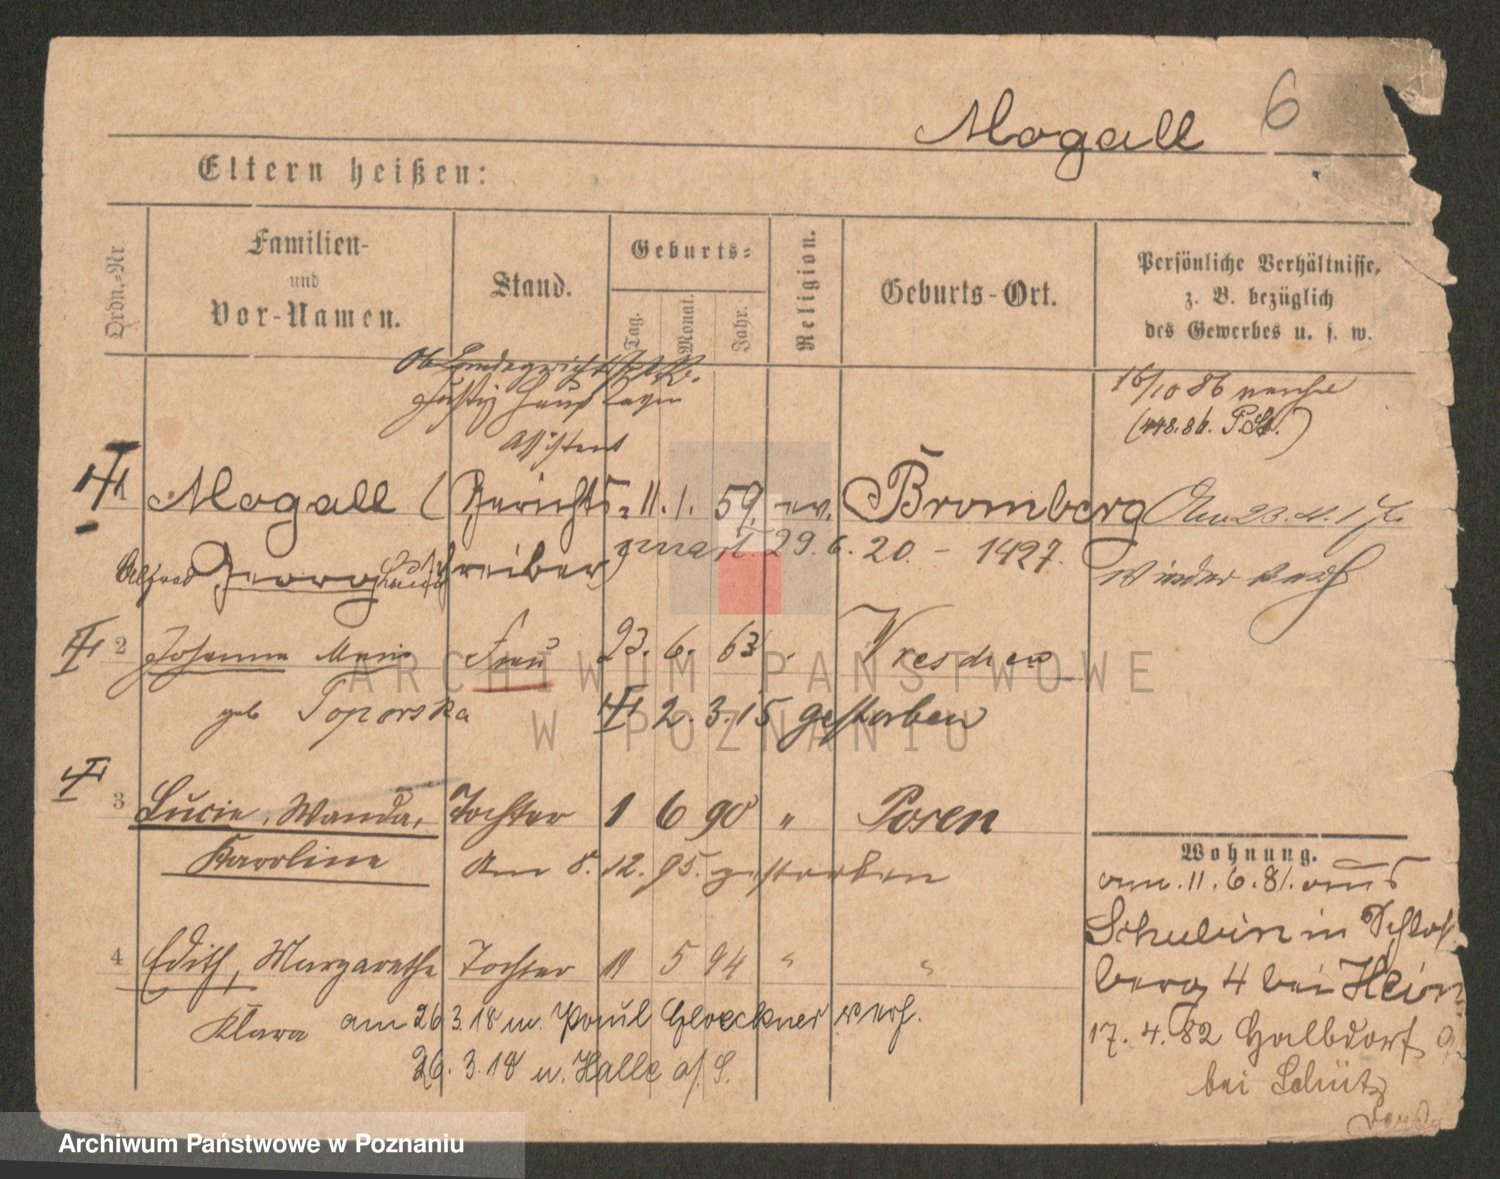 Mogall 6
Eltern heißen:
Ordn.-Nr
Familien-
und
Vor-Namen.
Stand.
Geburts-
Tag.
Monat.
Jahr.
Religion.
Geburts-Ort.
Persönliche Verhältnisse,
z. B. bezüglich
des Gewerbes u. s. w.
Assistent
16/10 86
(448.86. )
1 Mogall (Gerichts- 11. 1. 59. ev. Bromberg
Alfred Georg schreiber) 29. 6. 20. – 1427.
wieder verh
2 Johanna Frau 23. 6. 63 Dresden
geb Toporska 2. 3. 15 gestorben
3 Lucie, Wanda, Tochter 1 6 90 " Posen
Karoline Am 8. 12. 95. gestorben
4 Edith, Margarethe Tochter 11 5 94 " "
Klara am 26 3. 18 m. Paul Gloeckner verh.
26. 3. 18 n. Halle a/S.
Wohnung.
am. 11. 6. 81. aus
Schubin in Schloß
berg 4 bei Hein
17. 4. 82 Halbdorf
bei Schütz
ARCHIWUM PAŃSTWOWE
W POZNANIU
Archiwum Państwowe w Poznaniu